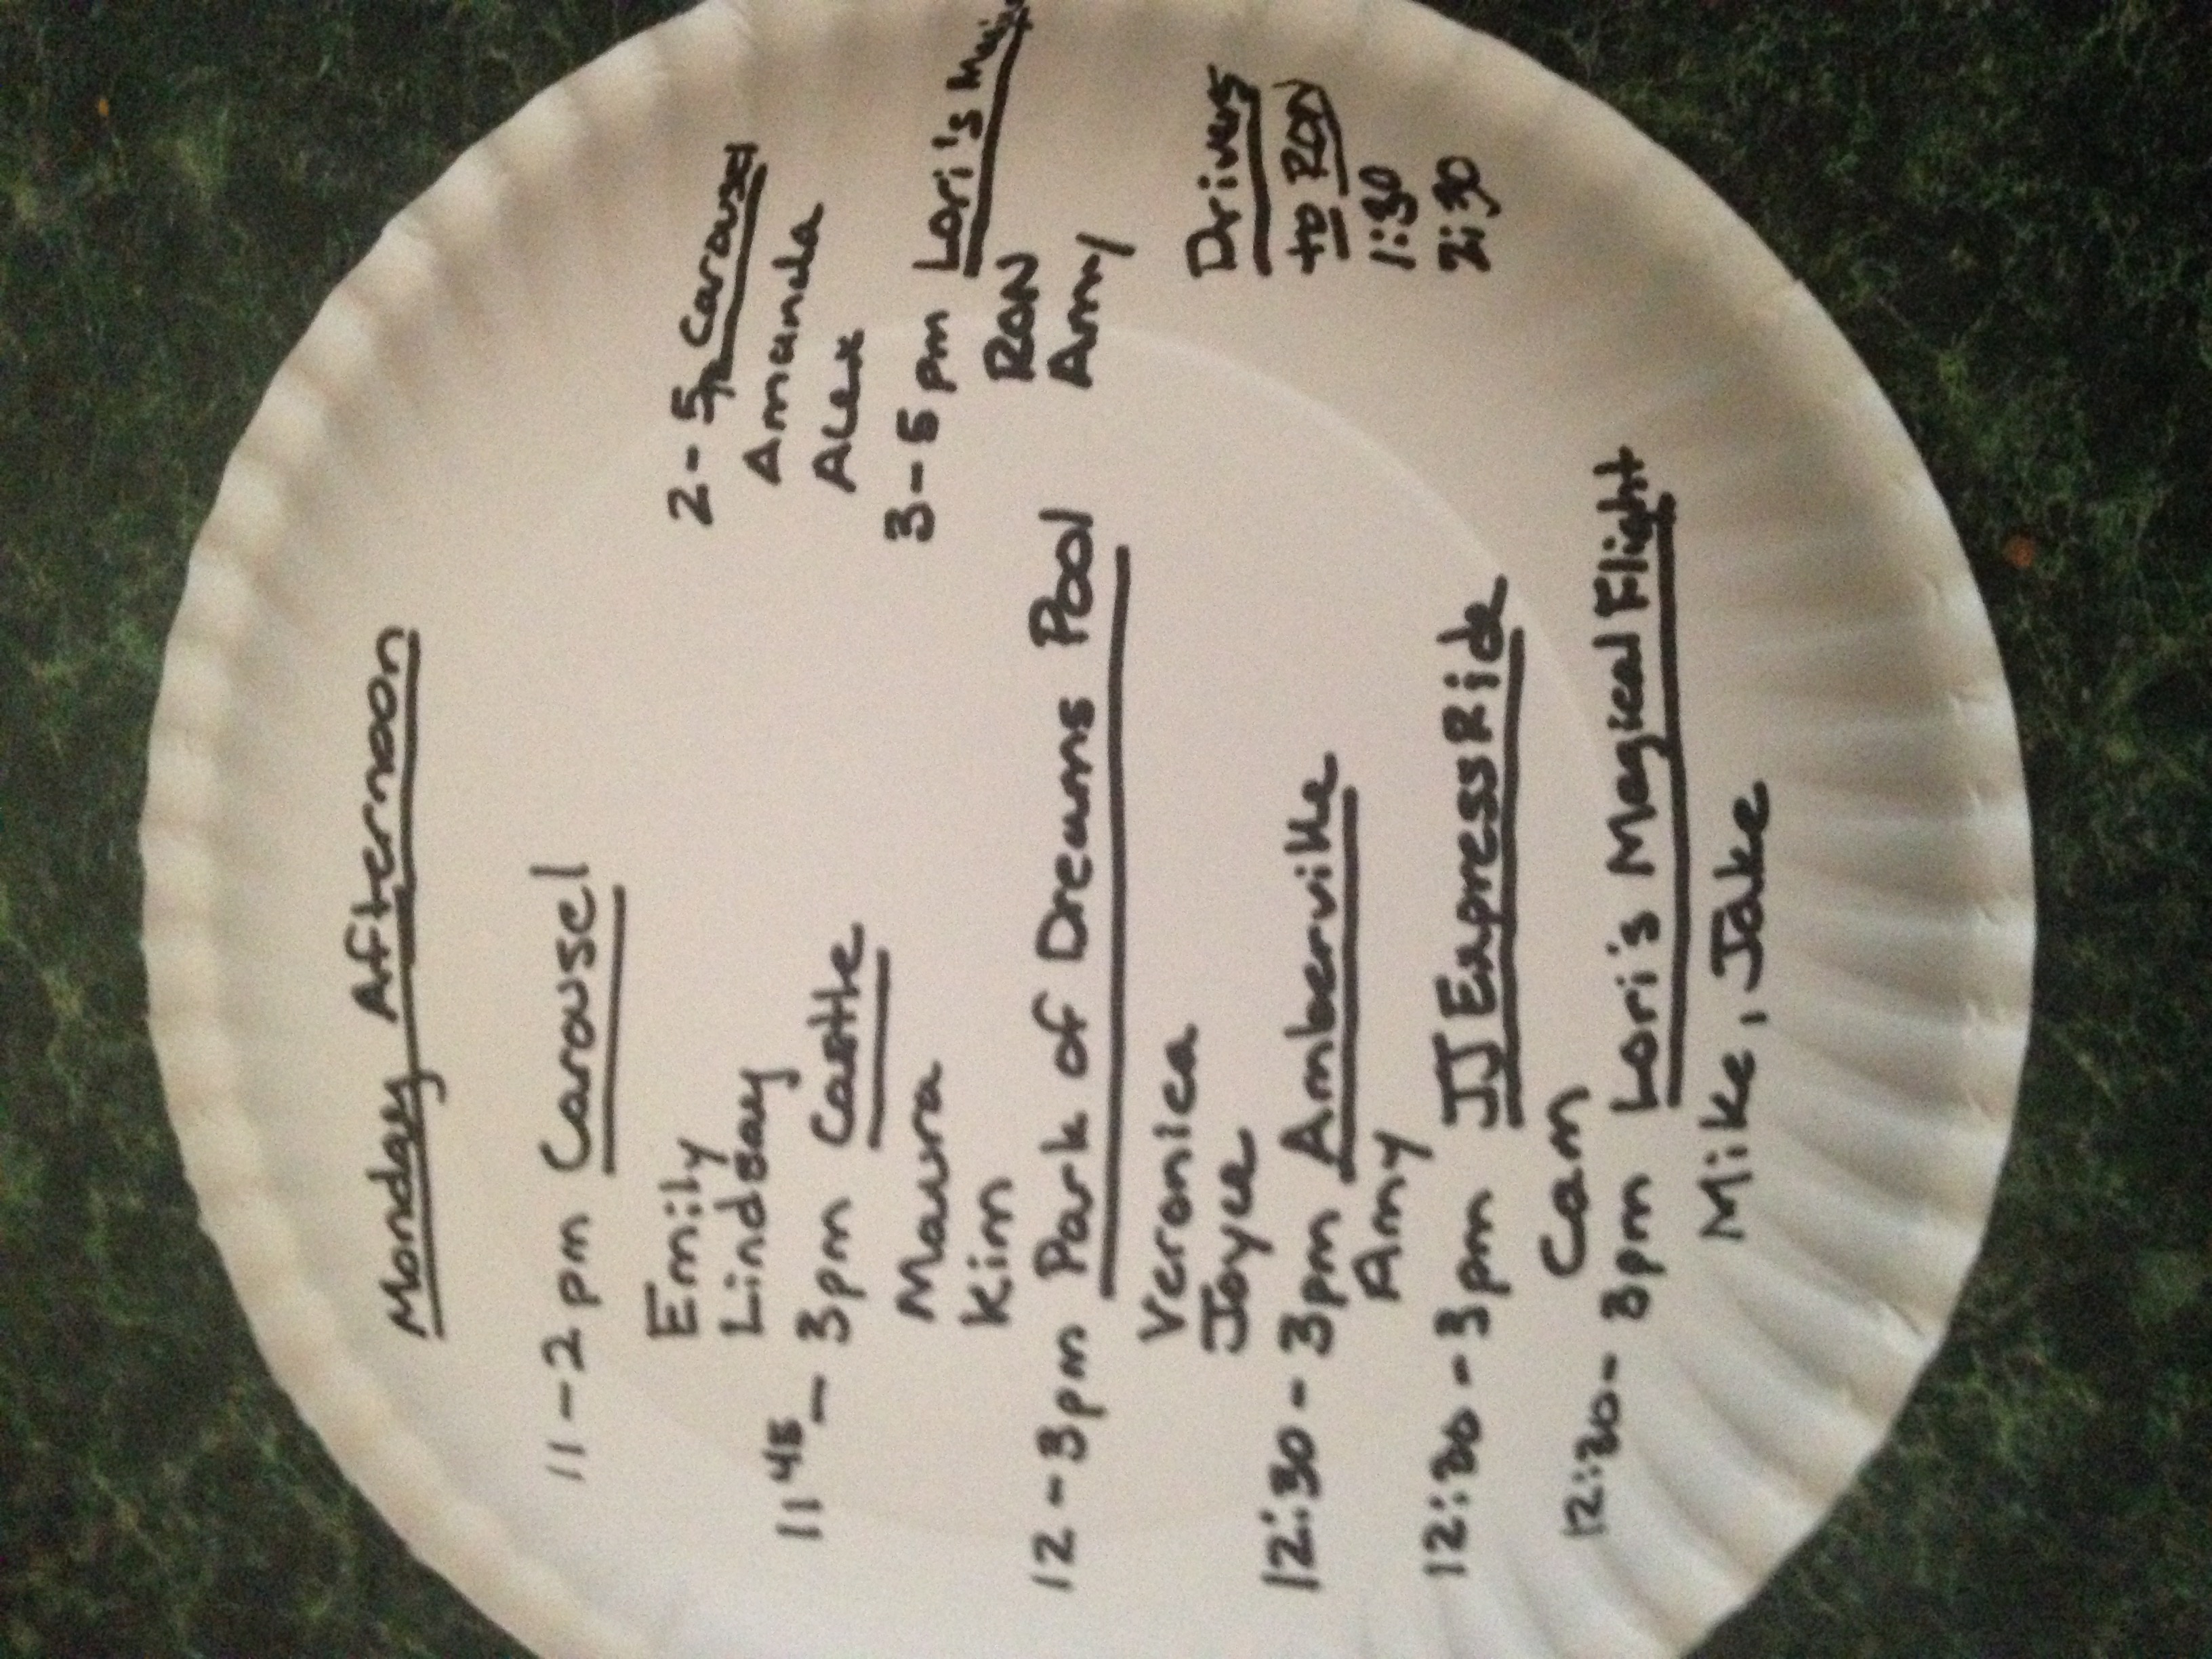 Monday Afternoon
11-2pm Carousel
Emily
Lindsay
11 45 - 3pm Castle
Maura
Kim
12-3pm Park of Dreams Pool
Veronica
Joyce
12:30-3pm Amberville
Amy
12:30-3pm JJ Express Ride
Cam
12:30-3pm Lori's Magical Flight
Mike, Jake
2-5p Carousel
Amanda
Alex
3-5pm Lori's
RON
Amy
Drivers
to RON
1:30
2:30